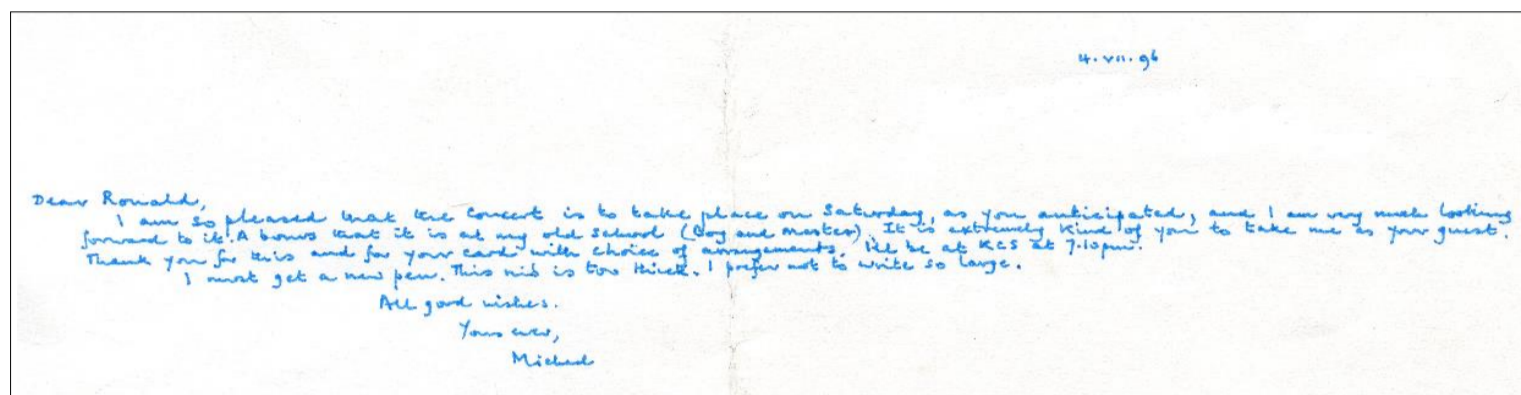 4.vii.96
Dear Ronald,
I am so pleased that the concert is to take place on Saturday, as you anticipated, and I am very much looking
forward to it. A bonus that it is at my old school (boy and master). It is extremely kind of you to take me as your guest.
Thank you for this and for your card with choice of arrangements. I'll be at KCS at 7.10pm.
I must get a new pen. This nib is too thick. I prefer not to write so large.
All good wishes.
Yours ever,
Michael